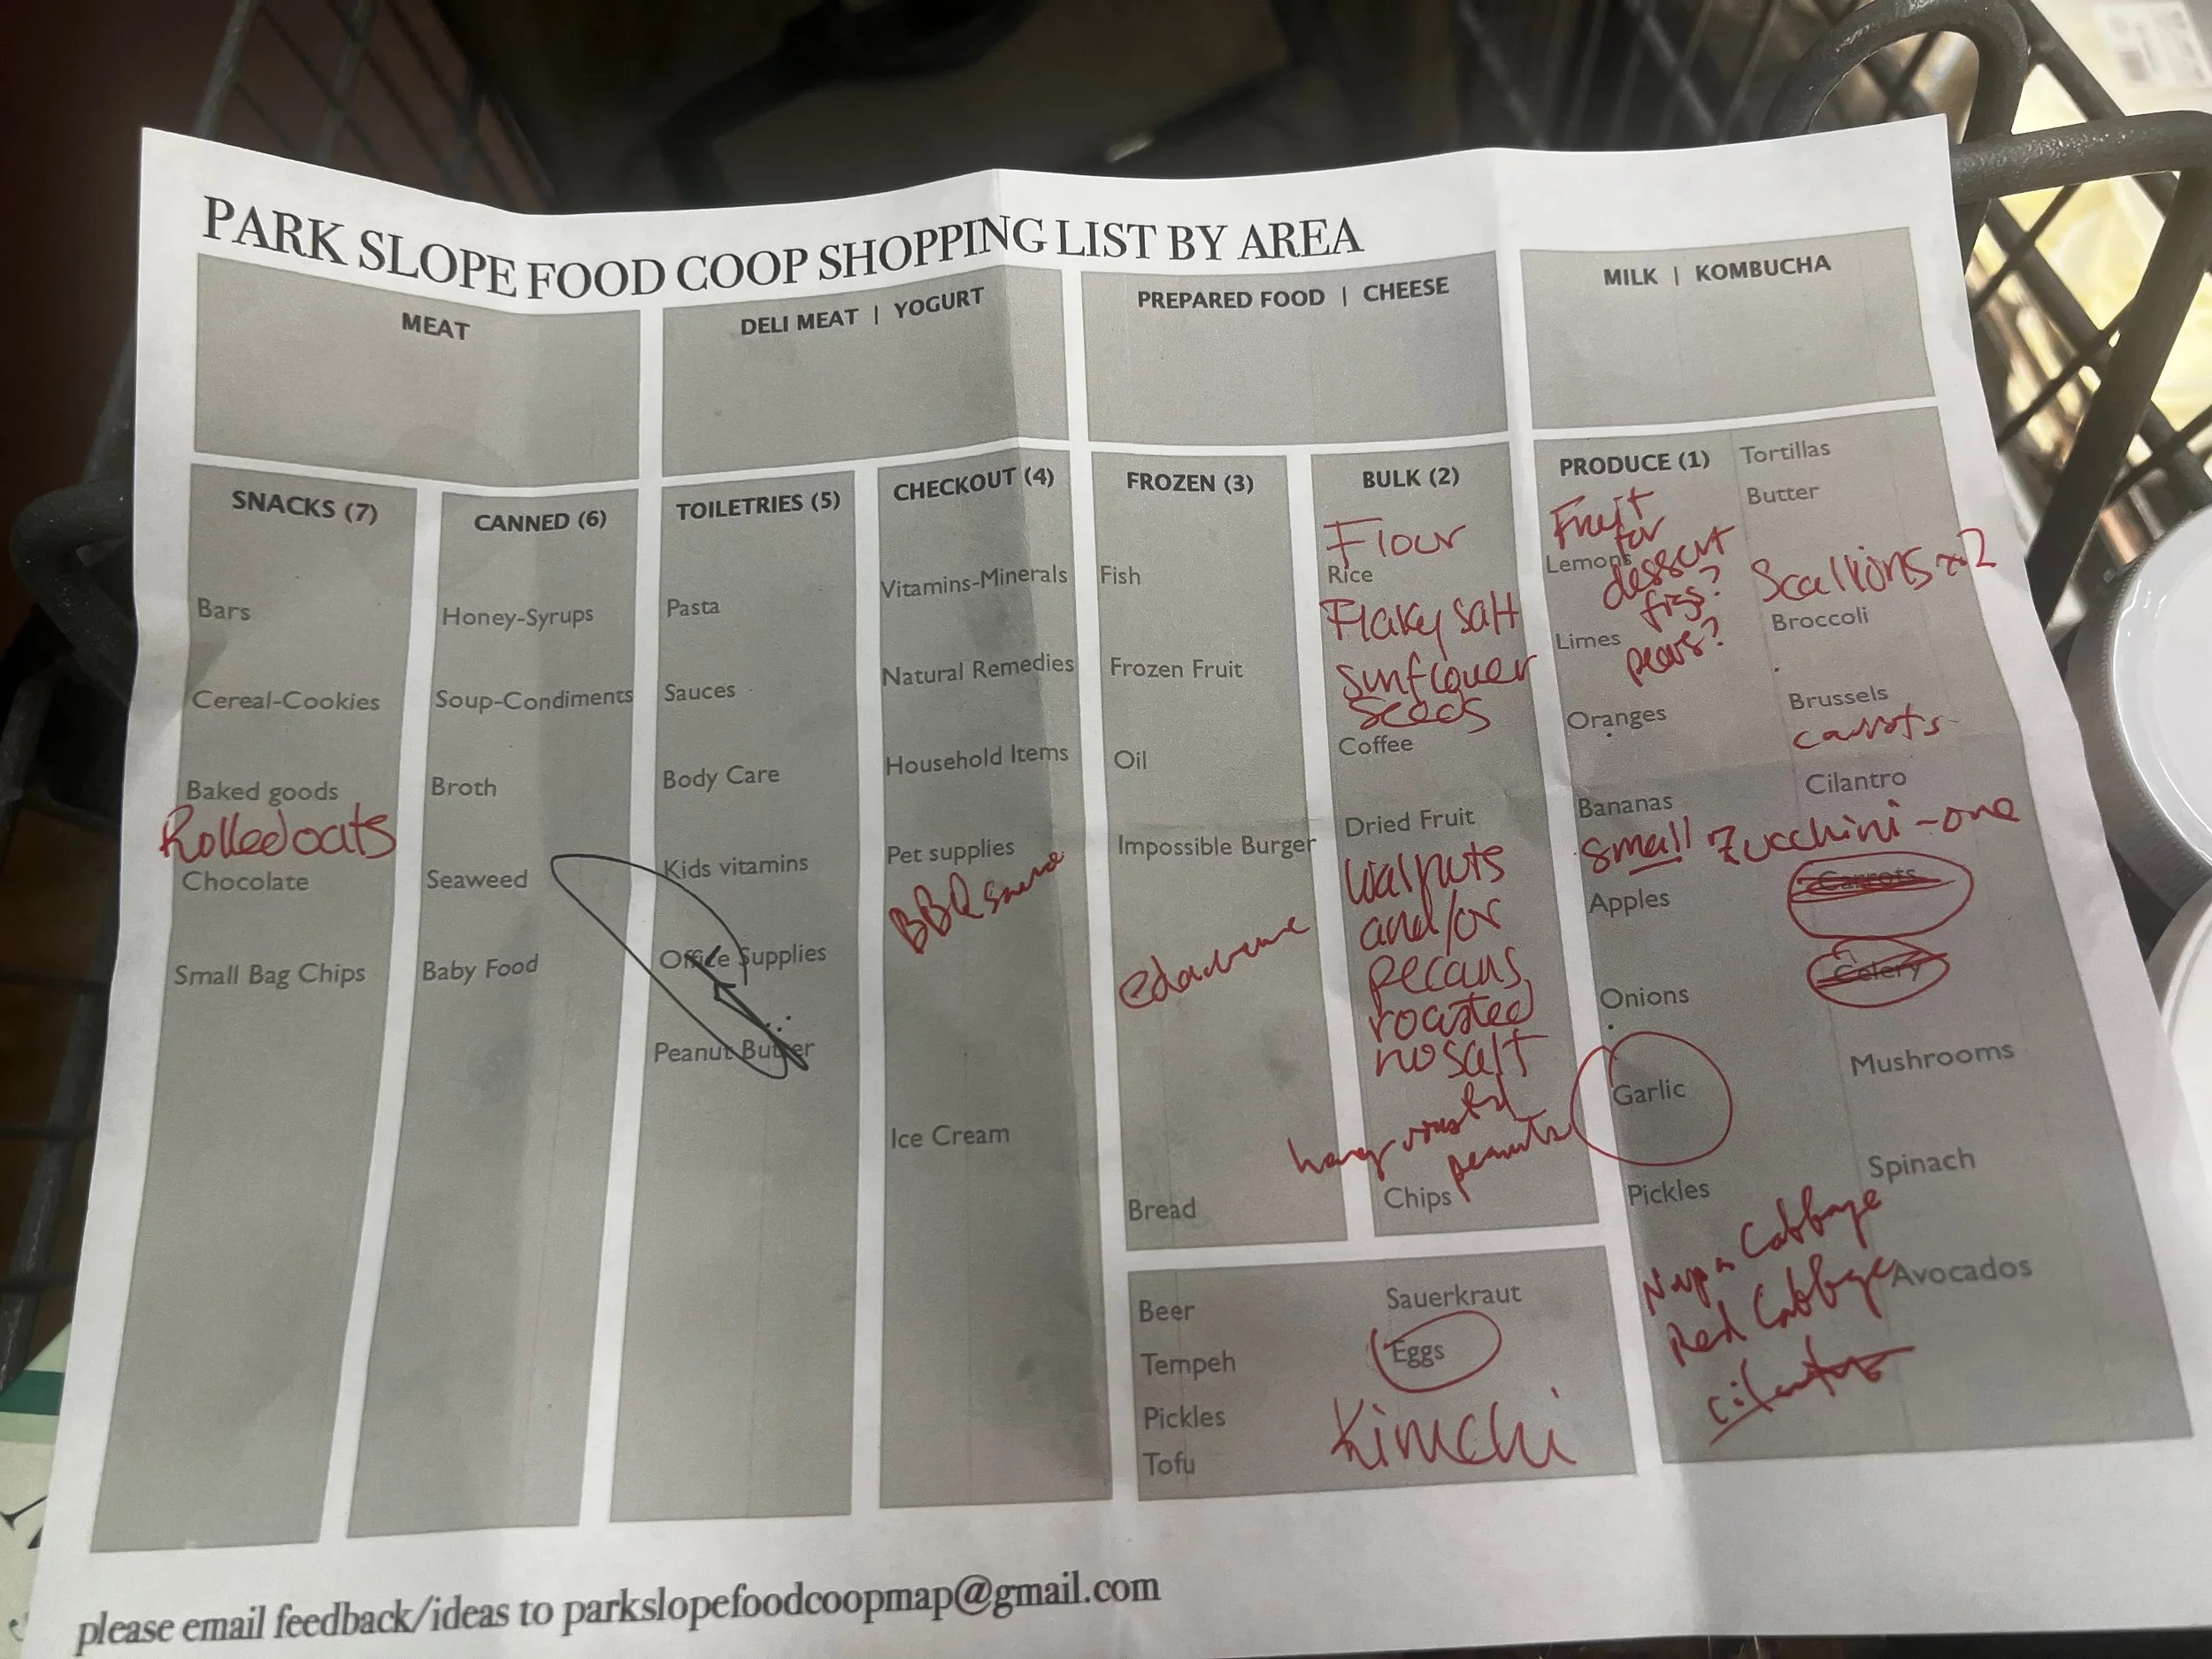 PARK SLOPE FOOD COOP SHOPPING LIST BY AREA
MEAT
DELI MEAT | YOGURT
PREPARED FOOD | CHEESE
MILK | KOMBUCHA
SNACKS (7)
Bars
Cereal-Cookies
Baked goods
Rolled oats
Chocolate
Small Bag Chips
CANNED (6)
Honey-Syrups
Soup-Condiments
Broth
Seaweed
Baby Food
TOILETRIES (5)
Pasta
Sauces
Body Care
Kids vitamins
Office Supplies
Peanut Butter
CHECKOUT (4)
Vitamins-Minerals
Natural Remedies
Household Items
Pet supplies
BBQ sauce
Ice Cream
FROZEN (3)
Fish
Frozen Fruit
Oil
Impossible Burger
edamame
Bread
BULK (2)
Flour
Rice
Flaky salt
sunflower
seeds
Coffee
Dried Fruit
walnuts
and/or
pecans,
roasted
no salt
honey roasted
peanuts
Chips
Beer
Tempeh
Pickles
Tofu
Sauerkraut
Eggs
Kimchi
PRODUCE (1)
Fruit
for
Lemons
dessert
figs?
Limes
pears?
Oranges
Bananas
small zucchini - one
Apples
Onions
Garlic
Pickles
Napa Cabbage
Red Cabbage
cilantro
Tortillas
Butter
Scallions x2
Broccoli
Brussels
carrots
Cilantro
Carrots
Celery
Mushrooms
Spinach
Avocados
please email feedback/ideas to parkslopefoodcoopmap@gmail.com